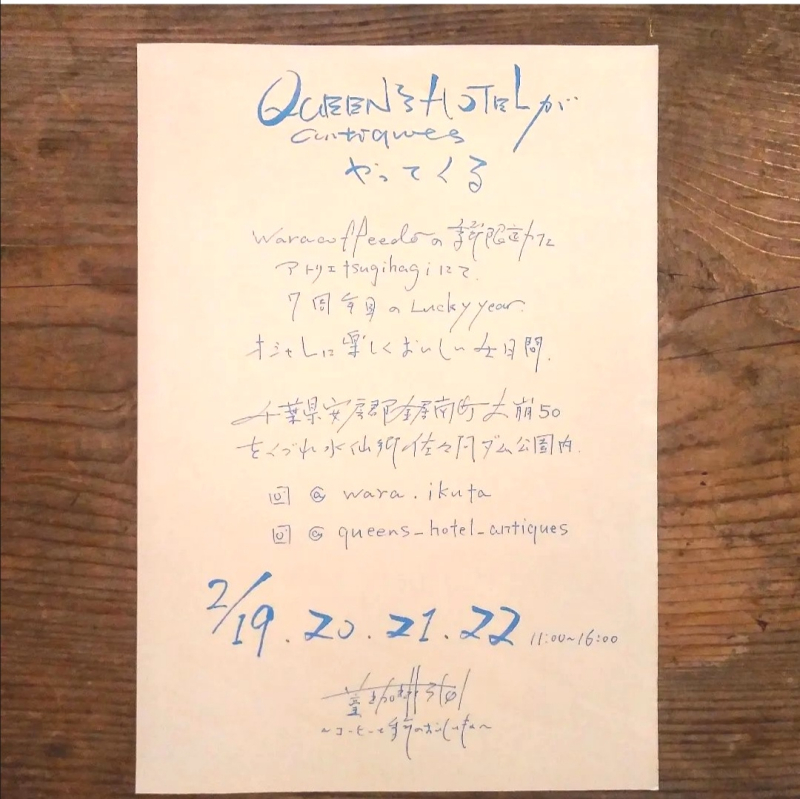 QUEEN'S HOTELが
antiques
やってくる
waracoffeedoの 限定カフェ
アトリエtsugihagiにて.
7周年目のLucky year.
オシャレに楽しくおいしい4日間.
千葉県安房郡鋸南町大崩50
をくづれ水仙郷 佐久間ダム公園内.
@ wara.ikuta
@ queens_hotel_antiques
2/19.20.21.22 11:00~16:00
~コーヒーと